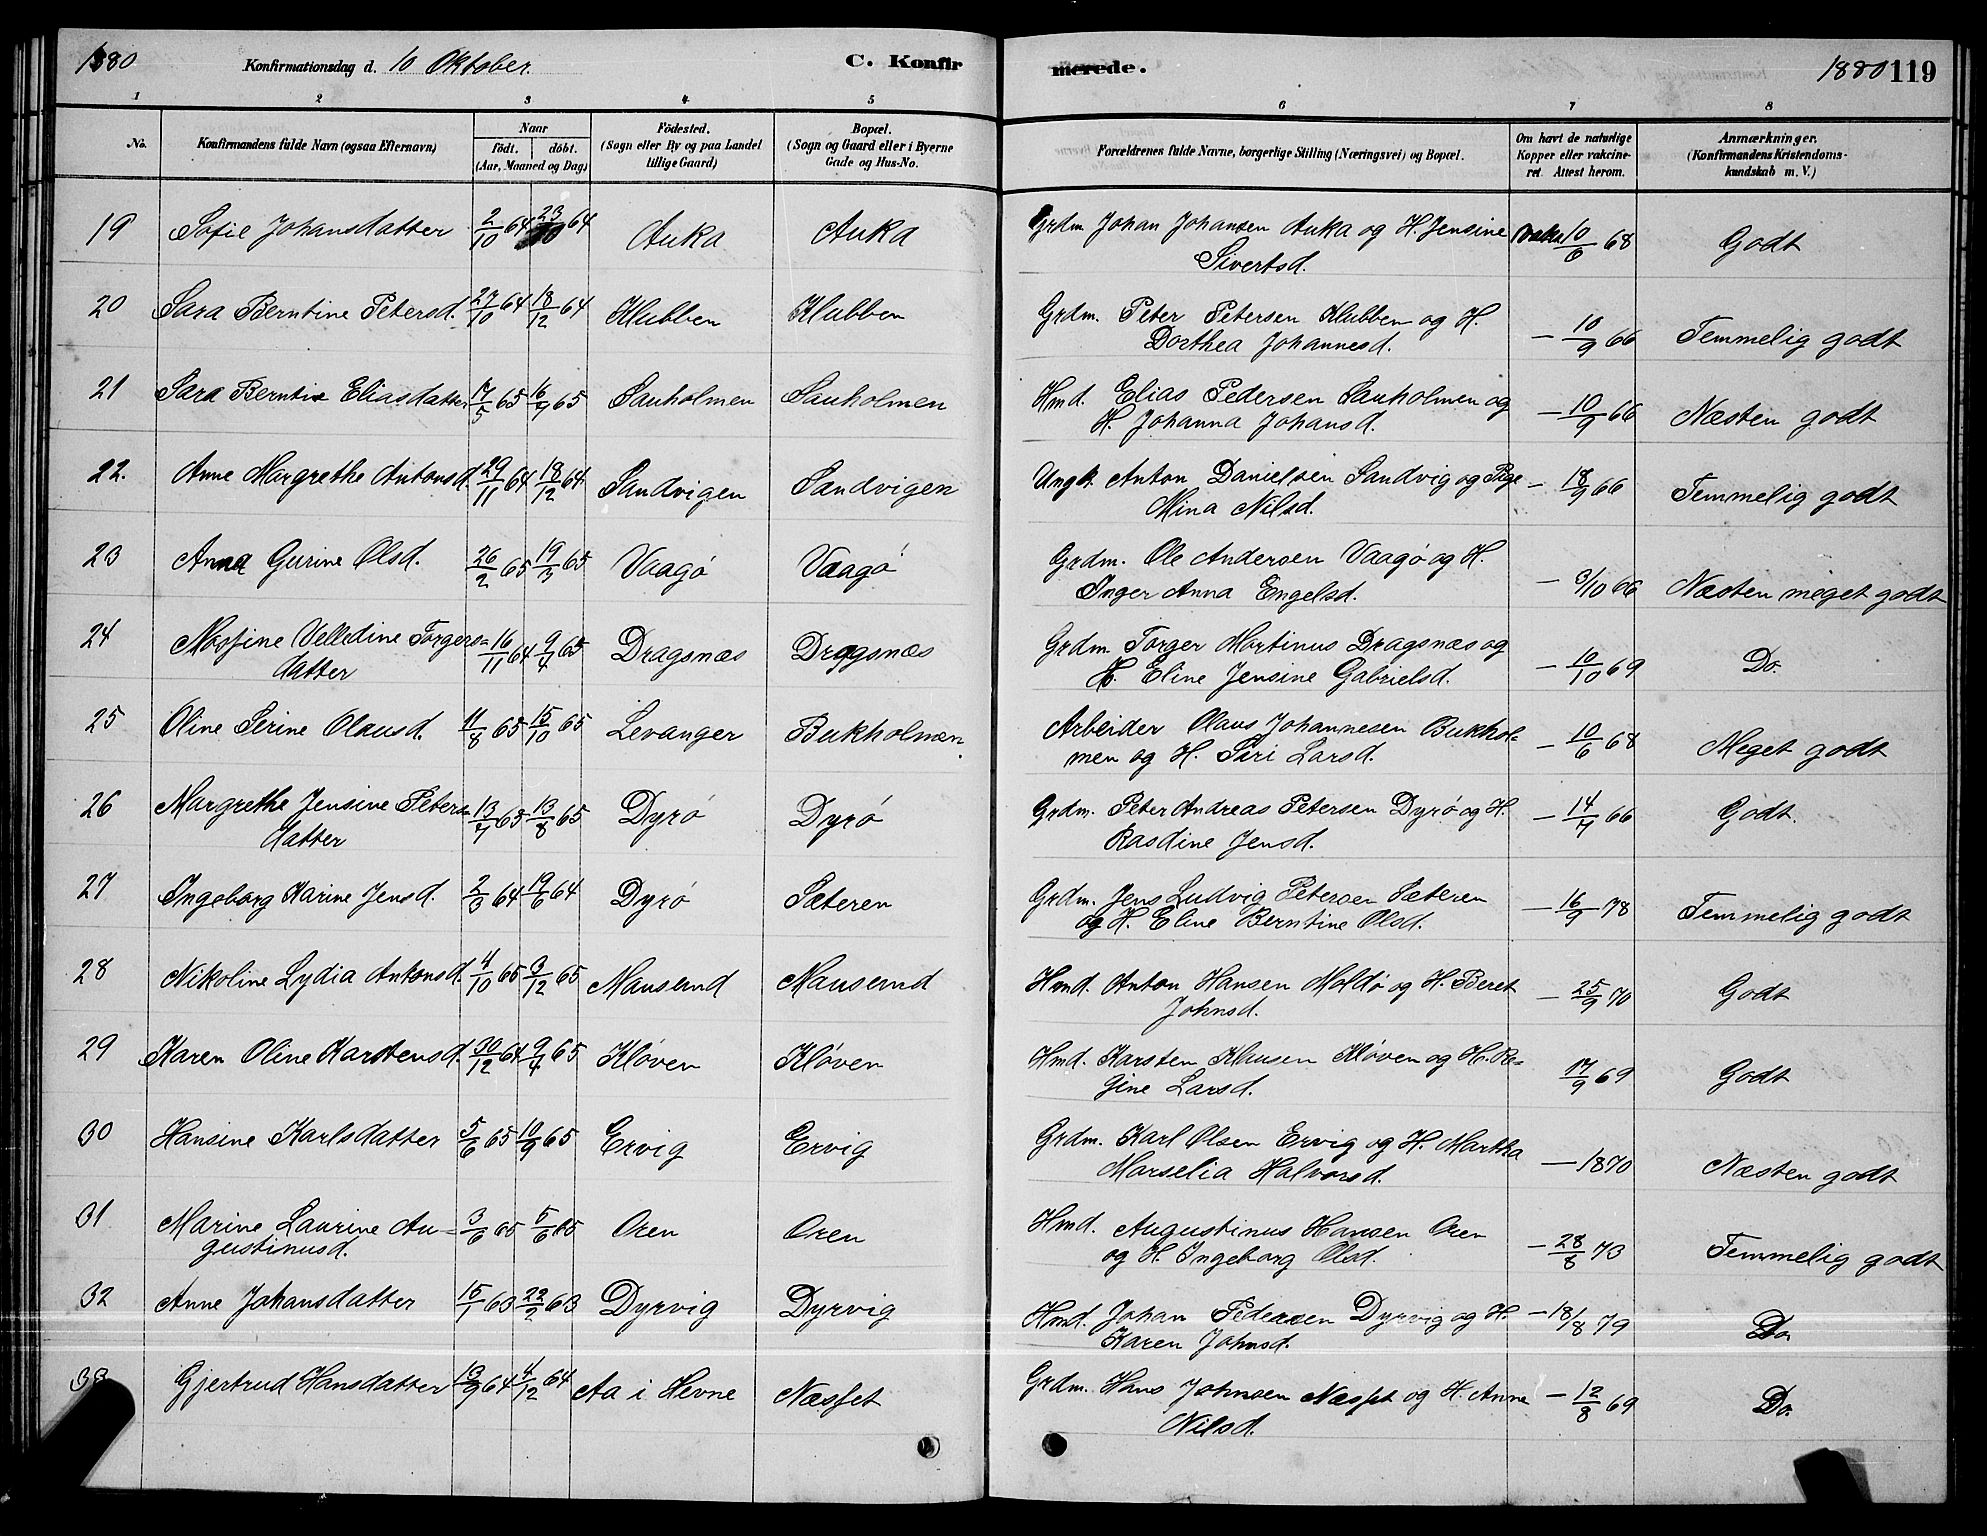 1880 Konfirmationsdag d. 10 Oktober. C. Konfirmerede. 1880 119
1 2 3 4 5 6 7 8
No. Konfirmandens fulde Navn (ogsaa Efternavn) Naar født. døbt. (Aar, Maaned og Dag) Fødested. (Sogn eller By og paa Landet tillige Gaard) Bopæl. (Sogn og Gaard eller i Byerne Gade og Hus-No. Forældrenes fulde Navne, borgerlige Stilling (Næringsvei) og Bopæl. Om havt de naturlige Kopper eller vakcineret. Attest herom. Anmærkninger. (Konfirmandens Kristendomskundskab m. V.)
19 Sofie Johansdatter 2/10 64 23/10 64 Auka Auka Grdm Johan Johansen Auka og H. Jensine 10/6 68 Godt
Sivertsd.
20 Sara Berntine Petersd. 27/10 64 18/12 64 Klubben Klubben Grdm. Peter Petersen Klubben og H. — 10/9 66 Temmelig godt
Dorthea Johannesd.
21 Sara Berntine Eliasdatter 17/5 65 16/7 65 Sauholmen Sauholmen Hmd. Elias Pedersen Sauholmen og — 10/9 66 Næsten godt
H. Johanna Johansd.
22. Anne Margrethe Antonsd. 29/11 64 18/12 64 Sandvigen Sandvigen Ungk. Anton Danielsen Sandvig og Pige — 18/9 66 Temmelig godt
Mina Nilsd.
23 Anna Gurine Olsd. 26/2 65 19/3 65 Vaagø Vaagø Grdm. Ole Andersen Vaagø og H. — 3/10 66 Næsten meget godt
Inger Anna Engelsd.
24 Velledine Torgers= 16/11 64 9/4 65 Dragsnæs Dragsnæs Grdm Torger Martinus Dragsnæs og — 10/10 69 Do.
datter H. Eline Jensine Gabrielsd.
25 Oline Serine Olausd. 11/8 65 15/10 65 Levanger Bukholmen. Arbeider Olaus Johannesen Bukhol= — 10/6 68 Meget godt
men og H. Siri Larsd.
26 Margrethe Jensine Peters= 13/7 65 13/8 65 Dyrø Dyrø Grdm. Peter Andreas Petersen Dyrø og H. — 14/7 66 Godt.
datter Rasdine Jensd.
27 Ingeborg Karine Jensd. 2/3 64 19/6 64 Dyrø Sæteren Grdm. Jens Ludvig Petersen Sæteren — 16/9 78 Temmelig godt
og H. Eline Berntine Olsd.
28 Nikoline Lydia Antonsd. 4/10 65 3/12 65 Mausund Mausund Hmd. Anton Hansen Moldø og H. Beret — 25/9 70 Godt
Johnsd.
29 Karen Oline Karstensd. 30/12 64 9/4 65 Kløven Kløven Hmd. Karsten Klausen Kløven og H. Re= 17/9 69 Godt
gine Larsd.
30 Hansine Karlsdatter 5/6 65 10/9 65 Ervig Ervig Grdm. Karl Olsen Ervig og H. Martha — 1870 Næsten godt
Marselia Halvorsd.
31 Marine Laurine Au= 3/6 65 5/6 65 Oren Oren Hmd. Augustinus Hansen Oren — 28/8 73 Temmelig godt
gustinusd. og H. Ingeborg Olsd.
32 Anne Johansdatter 15/1 63 22/2 63 Dyrvig Dyrvig Hmd. Johan Pedersen Dyrvig og H. — 18/8 79 Do.
Karen Johnsd.
33 Gjertrud Hansdatter 13/9 64 4/12 64 Aa i Hevne Næsset Grdm. Hans Johnsen Næsset og H. Anne — 12/8 69 Do.
Nilsd.